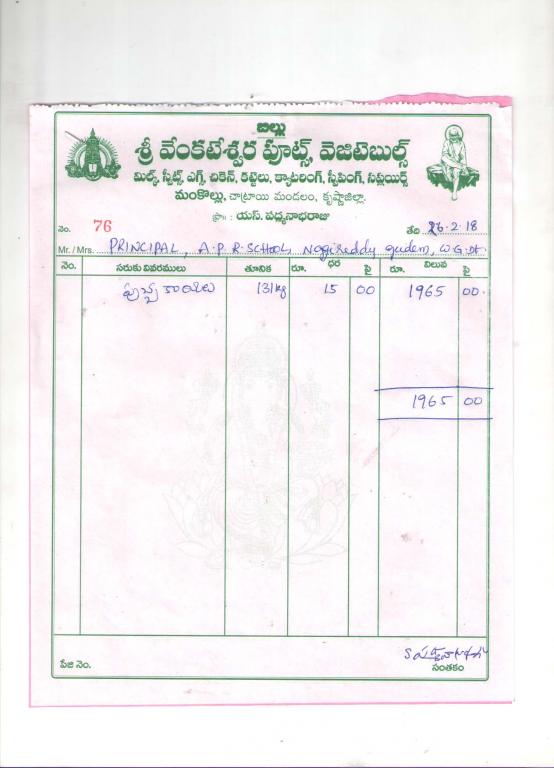 బిల్లు
శ్రీ వేంకటేశ్వర ఫ్రూట్స్, వెజిటెబుల్స్
మిల్క్, స్వీట్స్, ఎగ్స్, చికెన్, కట్టెలు, క్యాటరింగ్, స్వీపింగ్, సప్లయర్స్
మంకొల్లు, చాట్రాయి మండలం, కృష్ణాజిల్లా.
ప్రొ॥ : యస్. పద్మనాభరాజు
నెం. 76 తేది 26.2.18
Mr. / Mrs. PRINCIPAL, A.P.R-SCHOOL, Nagireddy gudem, W.G.Dt.
నెం. సరుకు వివరములు తూనిక రూ. ధర పై రూ. విలువ పై
పుచ్చకాయలు 131kg 15 00 1965 00
1965 00
పేజి నెం.
సంతకం